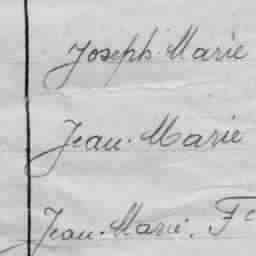 Joseph-Marie
Jean-Marie
Jean-Marie. Fc